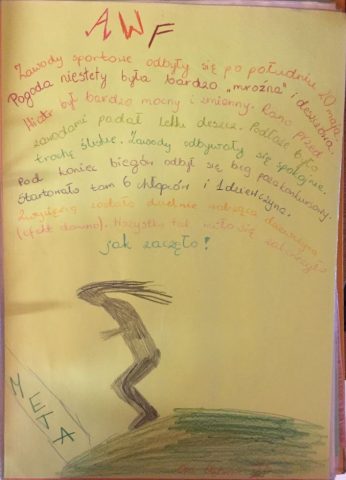 AWF
Zawody sportowe odbyły się po południu 20 maja.
Pogoda niestety była bardzo „mroźna" i deszczowa.
Wiatr był bardzo mocny i zmienny. Rano przed
zawodami padał lekki deszcz. Podłoże było
trochę śliskie. Zawody odbywały się spokojnie.
Pod koniec biegów odbył się bieg
Startowało tam 6 chłopców i 1 dziewczyna.
Zwyciężyła została dzielnie walcząca dziewczyna
(efekt downa). Wszystko tak miło się zakończyło
jak zaczęło!
META